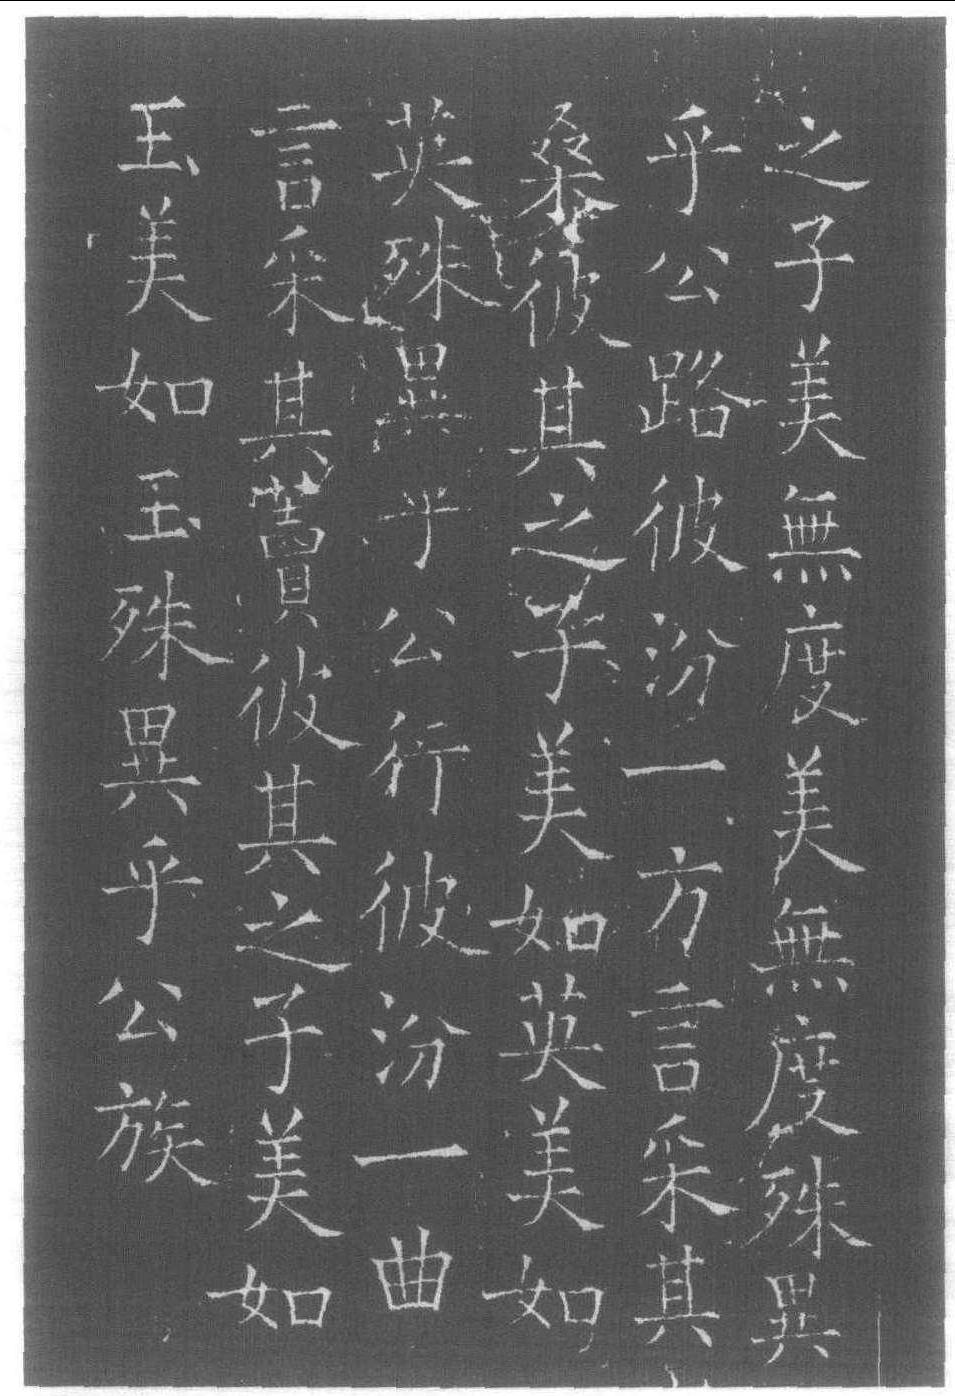 之子美無度美無度殊異
乎公路彼汾一方言采其
桑彼其之子美如英美如
英殊異乎公行彼汾一曲
言采其藚彼其之子美如
玉美如玉殊異乎公族